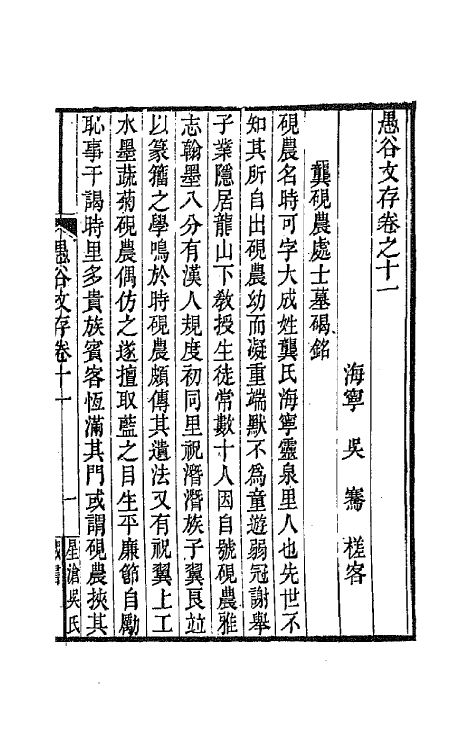 愚谷文存卷之十一
海寧 吳 騫 槎客
龔硯農處士墓碣銘
硯農名時可字大成姓龔氏海寧靈泉里人也先世不
知其所自出硯農幼而凝重端默不為童遊弱冠謝舉
子業隱居龍山下教授生徒常數十人因自號硯農雅
志翰墨八分有漢人規度初同里祝潛潛族子翼良竝
以篆籀之學鳴於時硯農頗傳其遺法又有祝翼上工
水墨蔬菊硯農偶仿之遂擅取藍之目生平廉節自勵
恥事干謁時里多貴族賓客恆滿其門或謂硯農挾其
愚谷文存卷十一
一
星滄吳氏